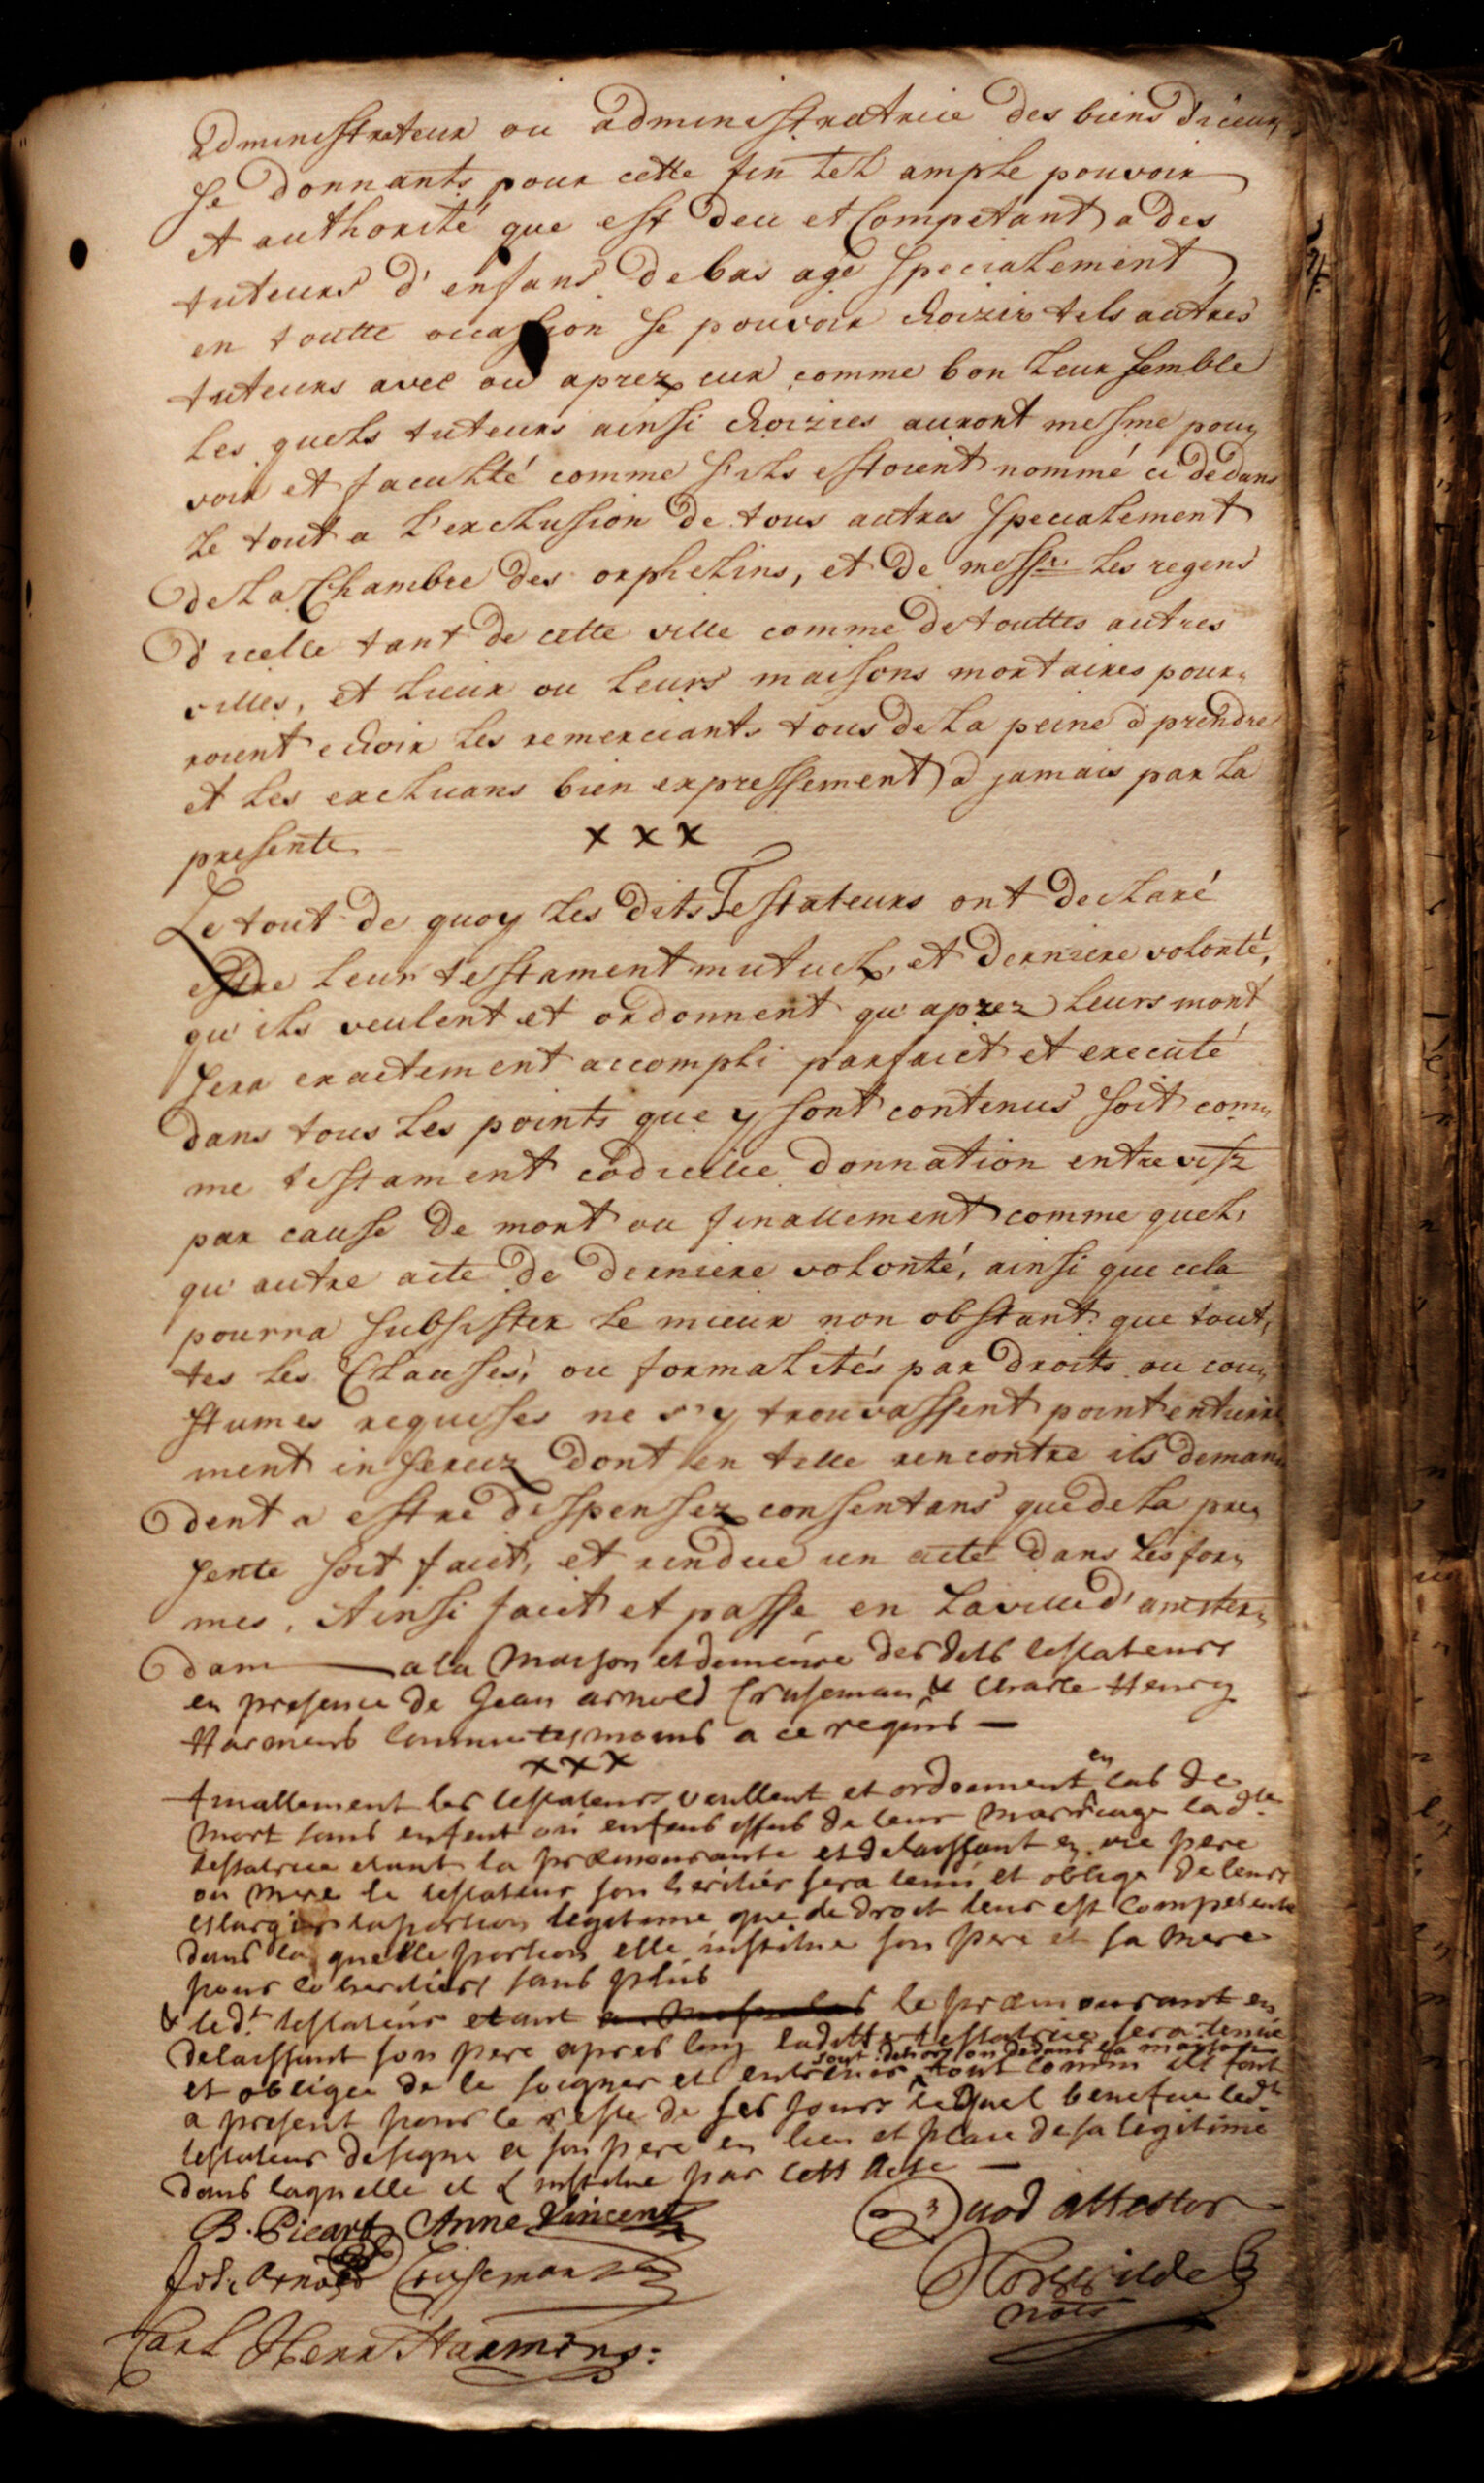 Administrateur ou administratrice des biens d'iceux,
se donnants pour cette fin tel ample pouvoir
et authorité que est deu et Competant a des
tuteurs d'enfans de bas age specialement
en toutte occassion se pouvoir choizir tels autres
tuteurs avec ou aprez eux comme bon leur semble
les quels tuteurs ainsi choizies auront mesme pou,,
voir et faculté comme s'ils estoient nommé ci dedans
le tout a l'exclusion de tous autres specialement
de la Chambre des orphelins, et de messrs. les regens
d'icelle tant de cette ville comme de touttes autres
villes, et lieux ou leurs maisons mortaires pour,,
roient echoir les remerciants tous de la peine a prendre
et les excluans bien expressement a jamais par la
presente
x x x
Le tout de quoy les dits Testateurs ont declaré
estre leur testament mutuel, et derniere volonté,
qu'ils veulent et ordonnent qu'aprez leurs mort
sera exactement accompli parfaict et executé
dans tous les points que y sont contenus soit com,,
me testament codicille donnation entre vifz
par cause de mort ou finallement comme quel,
qu'autre acte de derniere volonté, ainsi que cela
pourra subsister le mieux non obstant que tout,
tes les Clauses, ou formalités par droits ou cou,,
stumes requises ne s'y trouvassent point entiere
ment inserez dont en telle rencontre ils deman,,
dent a estre dispensez consentans que de la pre,,
sente soit faict, et rendue un acte dans les for,,
mes. Ainsi faict et passe en la ville d'amster,,
dam — a la maison et demeure des dits testateurs
en presence de Jean arnold Cruseman & Charle Henry
Harmens comme tesmoins a ce requis —
x x x
finallement les testateurs veullent et ordonnent en cas de
mort sans enfent ou enfens issus de leur marriage lad.te
testatrice etant la præmourante et delaissant en vie pere
ou mere le testateur son heritier sera tenu et oblige de leurs
eslargir la portion legitime que de droit leur est Competente
dans la quelle portion elle institue son pere et sa mere
pour coheritiers sans plus
& led.t testateur etant le præmourant en
delaissant son pere apres luy laditte testatrice sera tenue
et obligee de le soigner et entretenir soit dehors ou dedans sa maison tout comm ils font
a present pour le reste de ses jours lequel benefice led.t
testateur designe a son pere en lieu et place de sa legitime
dans laquelle il l'institue par cett acte —
B. Picart Anne Vincent
Quod attestor
Joh: Arnold Cruseman
nots
Carl Henr Harmens: